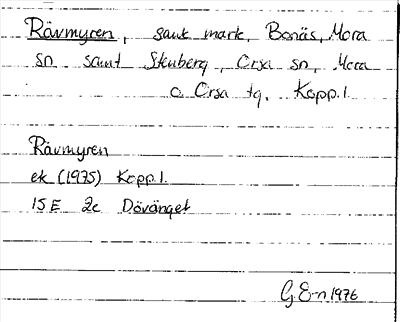 Rävmyren, sank mark, Bonäs, Mora
sn samt Stenberg, Orsa sn, Mora
o Orsa tg. Kopp. l.
Rävmyren
ek (1975) Kopp. l.
15E 2e Dövänget
G E-n 1976